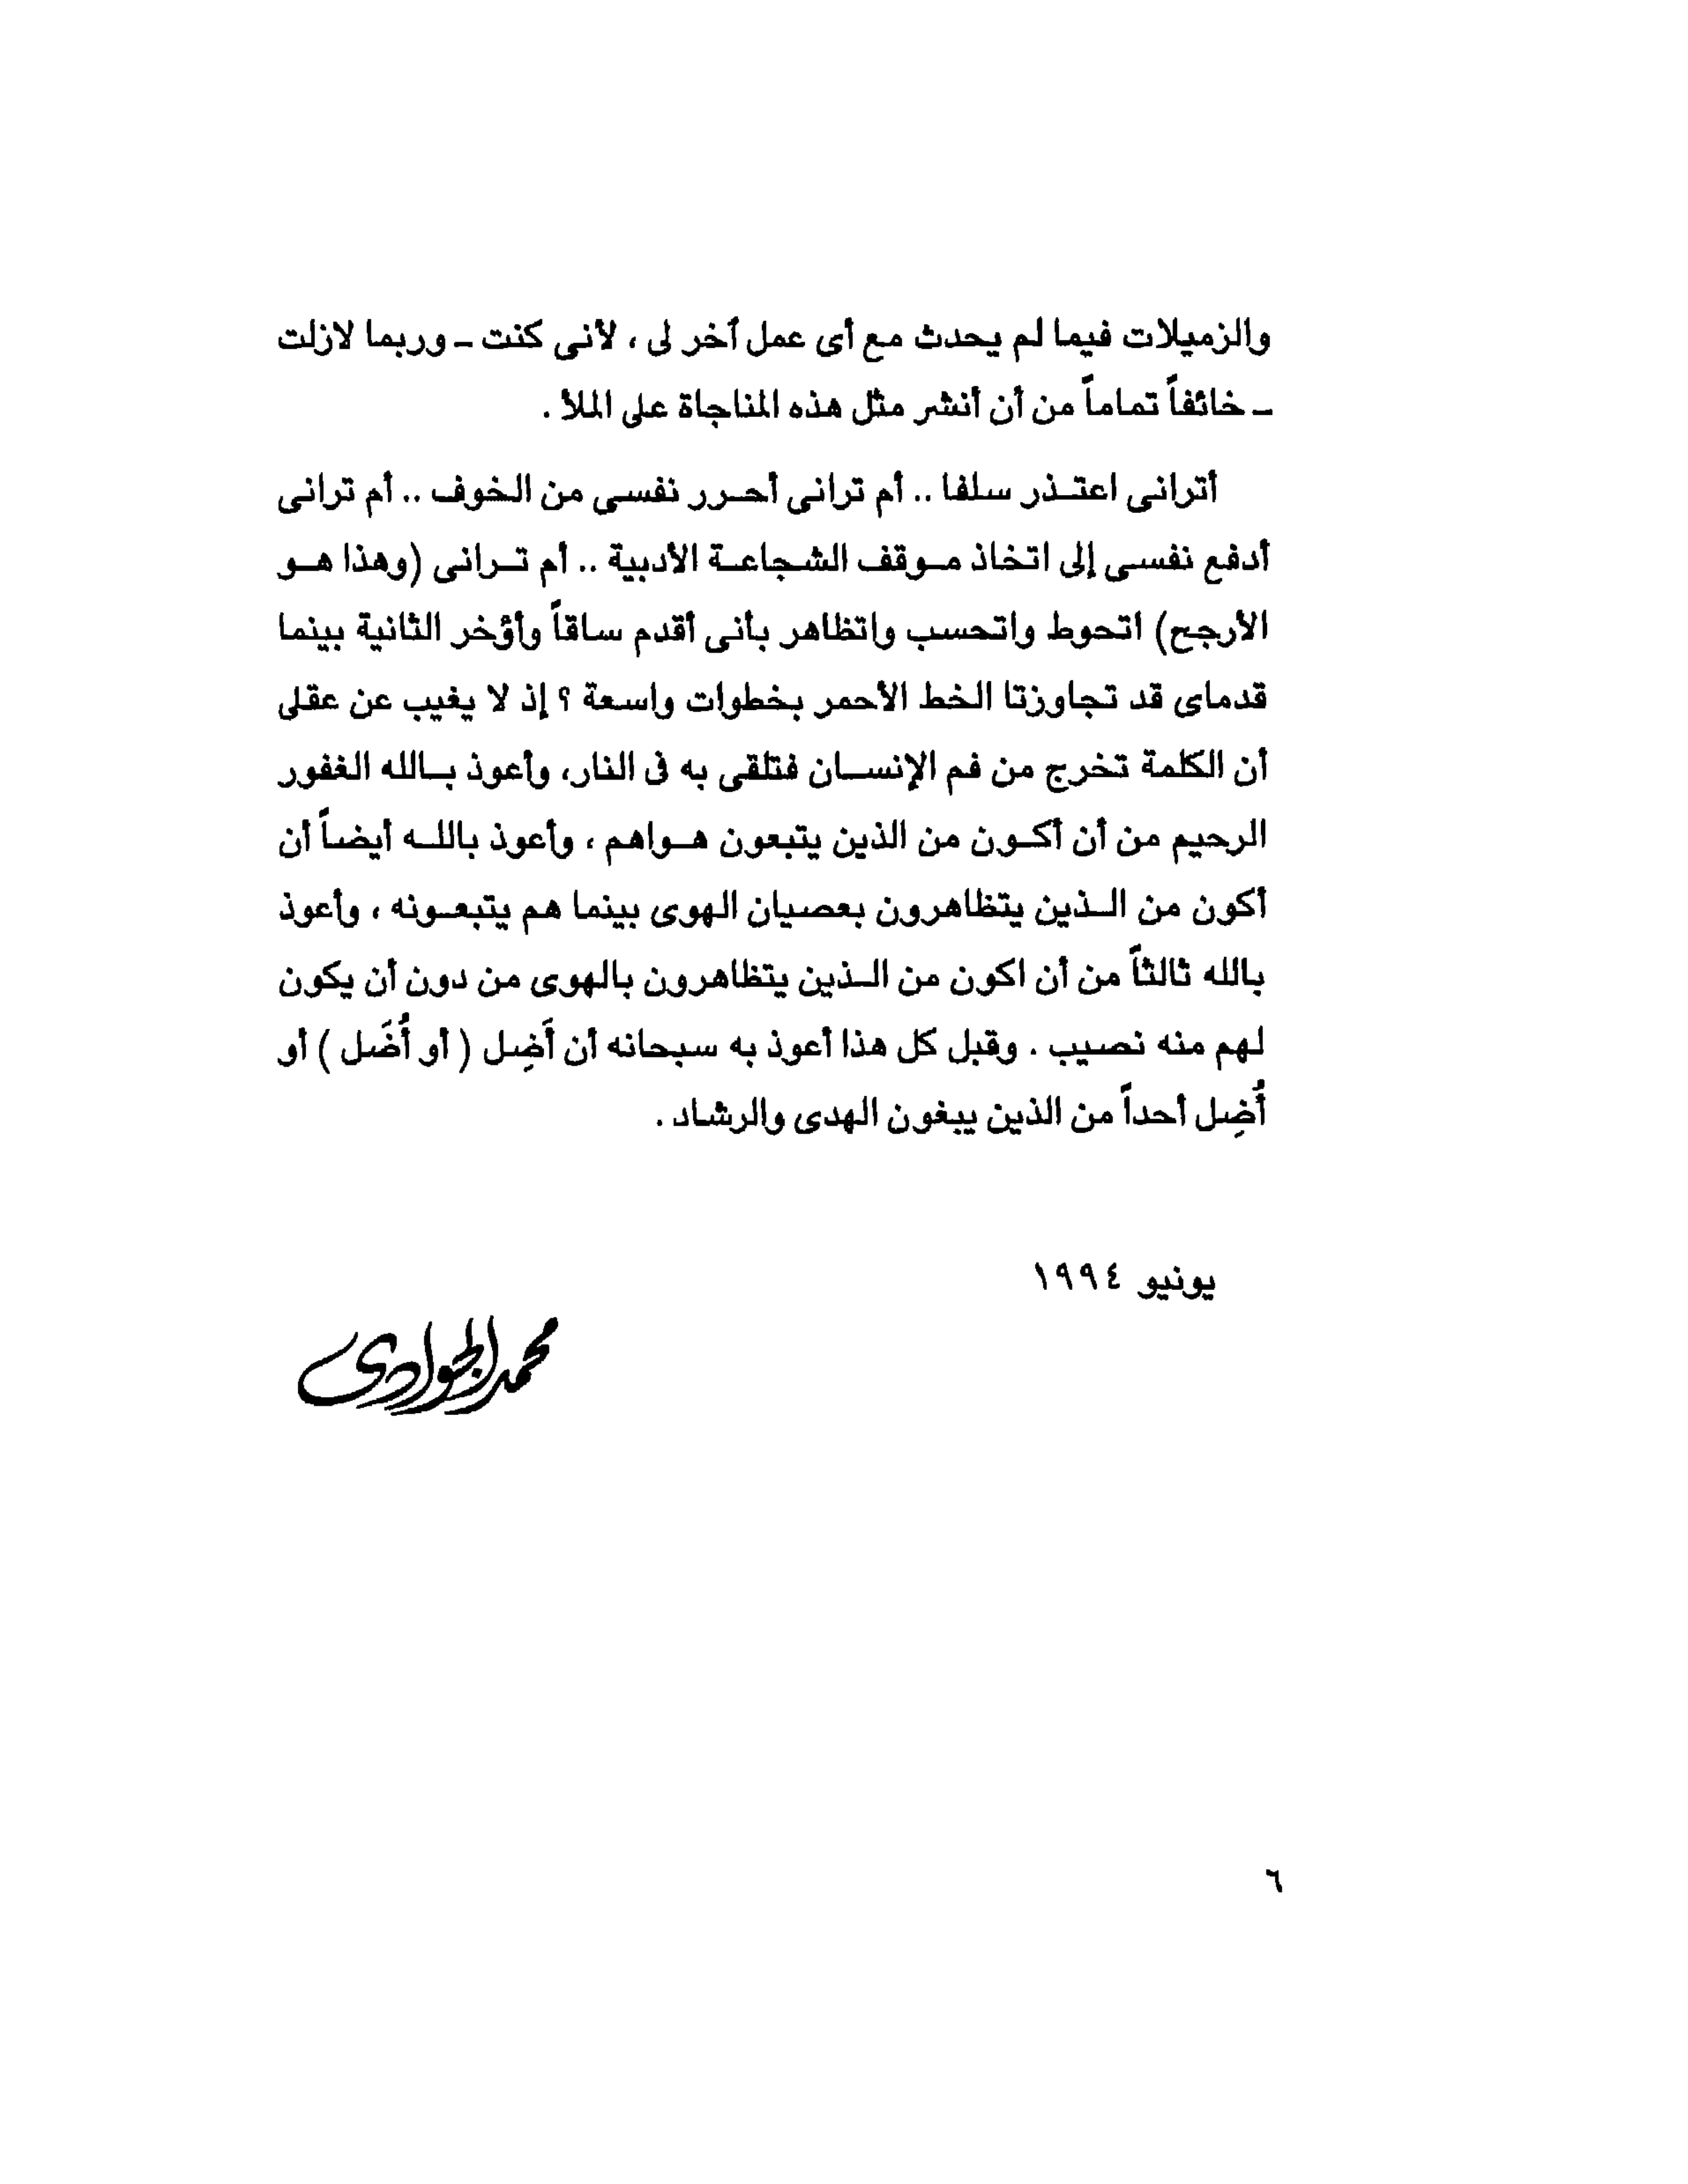 والزميلات فيما لم يحدث مع أى عمل آخر لى ، لأنى كنت ـ وربما لازلت
ـ خائفاً تماماً من أن أنشر مثل هذه المناجاة على الملأ .
أترانى اعتـذر سلفا .. أم ترانى أحـرر نفسى من الخوف .. أم ترانى
أدفع نفسى إلى اتخاذ مـوقف الشجاعـة الأدبية .. أم تـرانى (وهذا هـو
الأرجح) اتحوط واتحسب واتظاهر بأنى أقدم ساقاً وأؤخر الثانية بينما
قدماى قد تجاوزتا الخط الأحمر بخطوات واسعة ؟ إذ لا يغيب عن عقلى
أن الكلمة تخرج من فم الإنسـان فتلقى به فى النار، وأعوذ بـالله الغفور
الرحيم من أن أكـون من الذين يتبعون هـواهم ، وأعوذ باللـه أيضاً أن
أكون من الـذين يتظاهرون بعصيان الهوى بينما هم يتبعـونه ، وأعوذ
بالله ثالثاً من أن اكون من الـذين يتظاهرون بالهوى من دون أن يكون
لهم منه نصيب . وقبل كل هذا أعوذ به سبحانه أن أَضِل ( أو أُضَل ) أو
أُضِل أحداً من الذين يبغون الهدى والرشاد .
يونيو ١٩٩٤
محمد الجوادى
٦